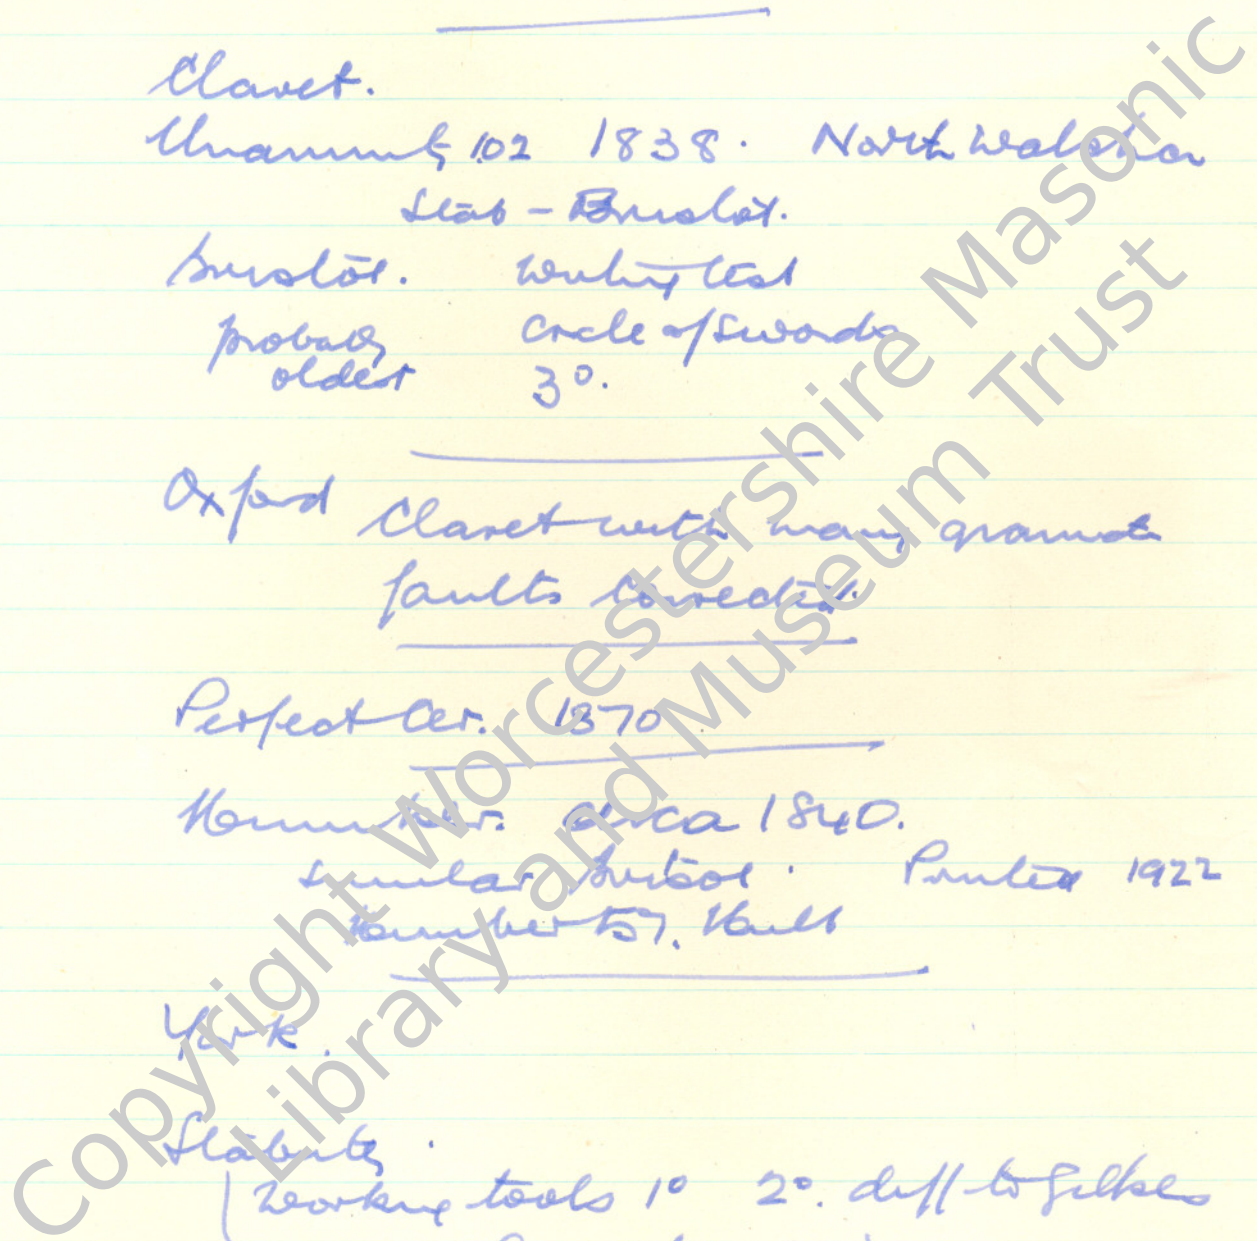 Claret.
Unanimity 102 1838. North Walsham
Stab - Bristol.
Bristol. Writing test
probably Circle of Swords
oldest 3°.
Oxford Claret with many gramat
faults corrected.
Perfect Cer. 1870
Humber. Circa 1840.
similar Bristol. Printed 1922
Humber 57. Hull
York.
Stability.
Working tools 1° 2°. diff to Gilkes
Copyright Worcestershire Masonic
Library and Museum Trust